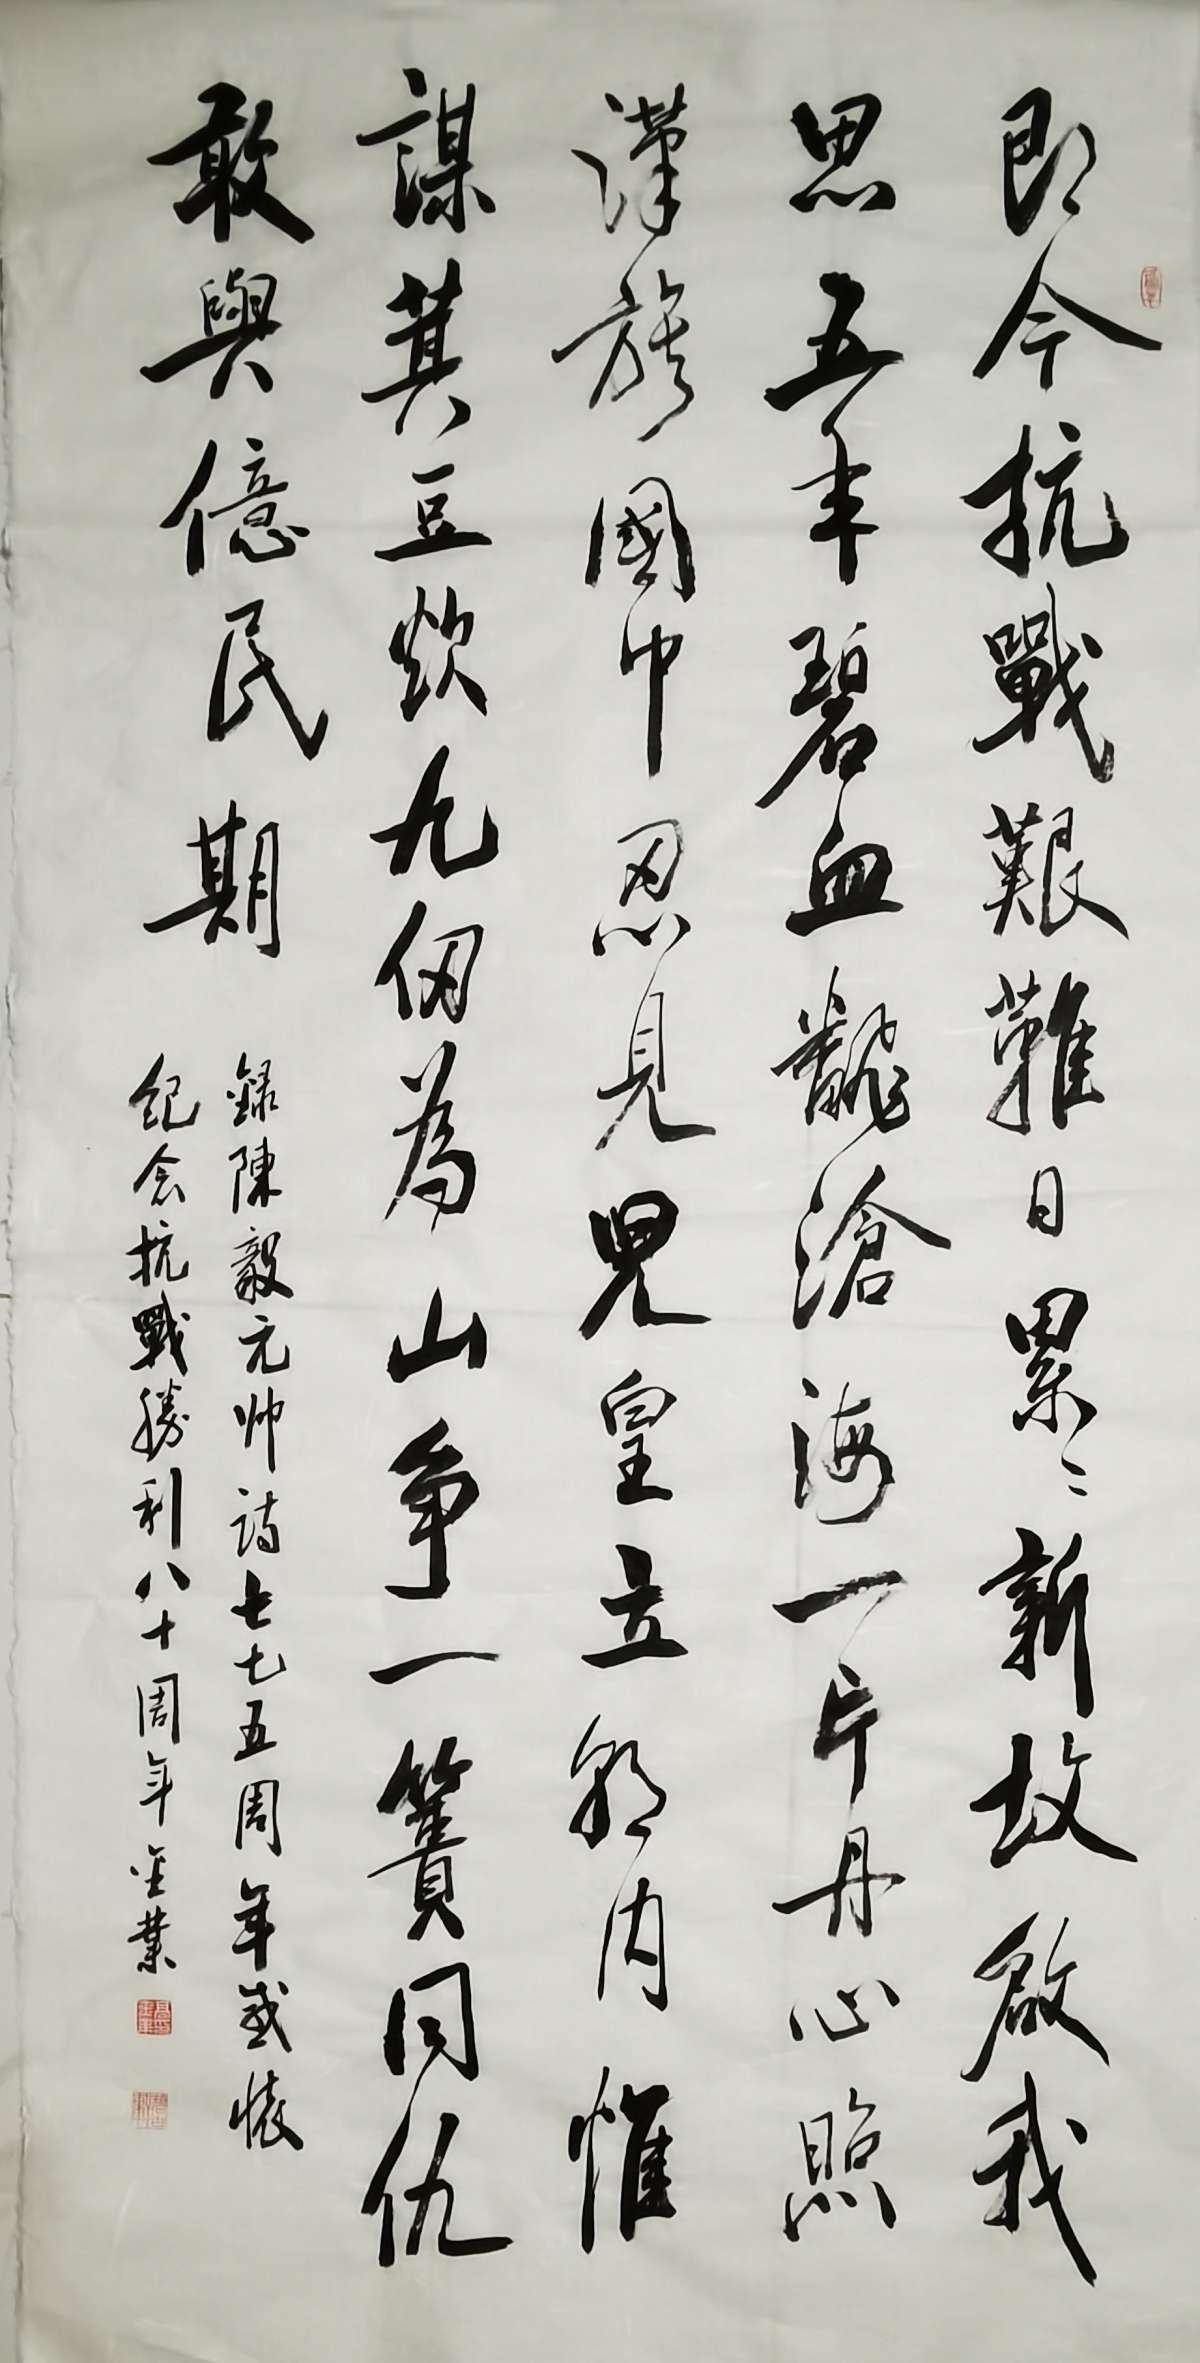 即今抗戰艱難日累〻新坟啟我
思五年碧血飜滄海一片丹心照
漢旗國中忍見兒皇立朝内惟
謀萁豆炊九仞為山争一簣同仇
敢與億民期
録陳毅元帅詩七七五周年感懷
紀念抗戰勝利八十周年金業